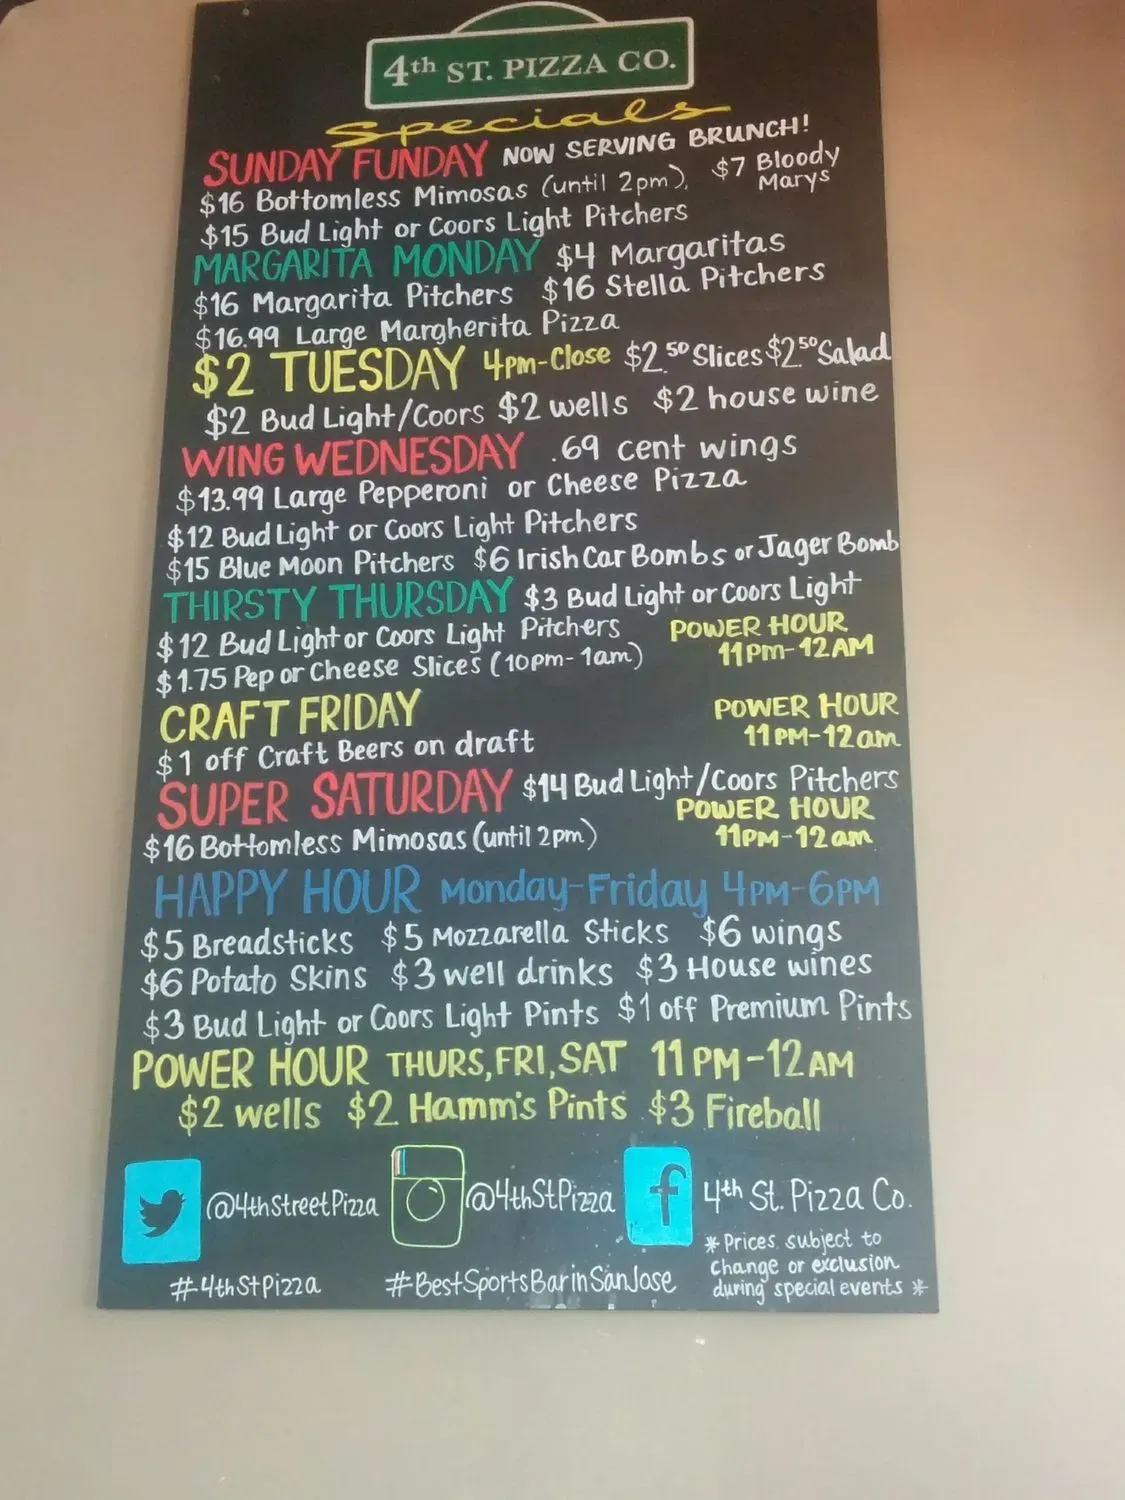 4th ST. PIZZA CO.
Specials
SUNDAY FUNDAY NOW SERVING BRUNCH!
$16 Bottomless Mimosas (until 2pm). $7 Bloody Marys
$15 Bud Light or Coors Light Pitchers
MARGARITA MONDAY $4 Margaritas
$16 Margarita Pitchers $16 Stella Pitchers
$16.99 Large Margherita Pizza
$2 TUESDAY 4PM-Close $2.50 Slices $2.50 Salad
$2 Bud Light/Coors $2 wells $2 house wine
WING WEDNESDAY .69 cent wings
$13.99 Large Pepperoni or Cheese Pizza
$12 Bud Light or Coors Light Pitchers
$15 Blue Moon Pitchers $6 Irish Car Bombs or Jager Bomb
THIRSTY THURSDAY $3 Bud Light or Coors Light
$12 Bud Light or Coors Light Pitchers POWER HOUR
$1.75 Pep or Cheese Slices (10pm-1am) 11Pm-12AM
CRAFT FRIDAY POWER HOUR
$1 off Craft Beers on draft 11PM-12am
SUPER SATURDAY $14 Bud Light/Coors Pitchers
POWER HOUR
$16 Bottomless Mimosas (until 2pm) 11PM-12am
HAPPY HOUR Monday-Friday 4PM-6PM
$5 Breadsticks $5 Mozzarella Sticks $6 wings
$6 Potato Skins $3 well drinks $3 House wines
$3 Bud Light or Coors Light Pints $1 off Premium Pints
POWER HOUR THURS, FRI, SAT 11PM-12AM
$2 wells $2 Hamm's Pints $3 Fireball
@4thStreetPizza @4thStPizza f 4th St. Pizza Co.
#4thStPizza #BestSportsBarinSanJose
*Prices subject to
change or exclusion
during special events *